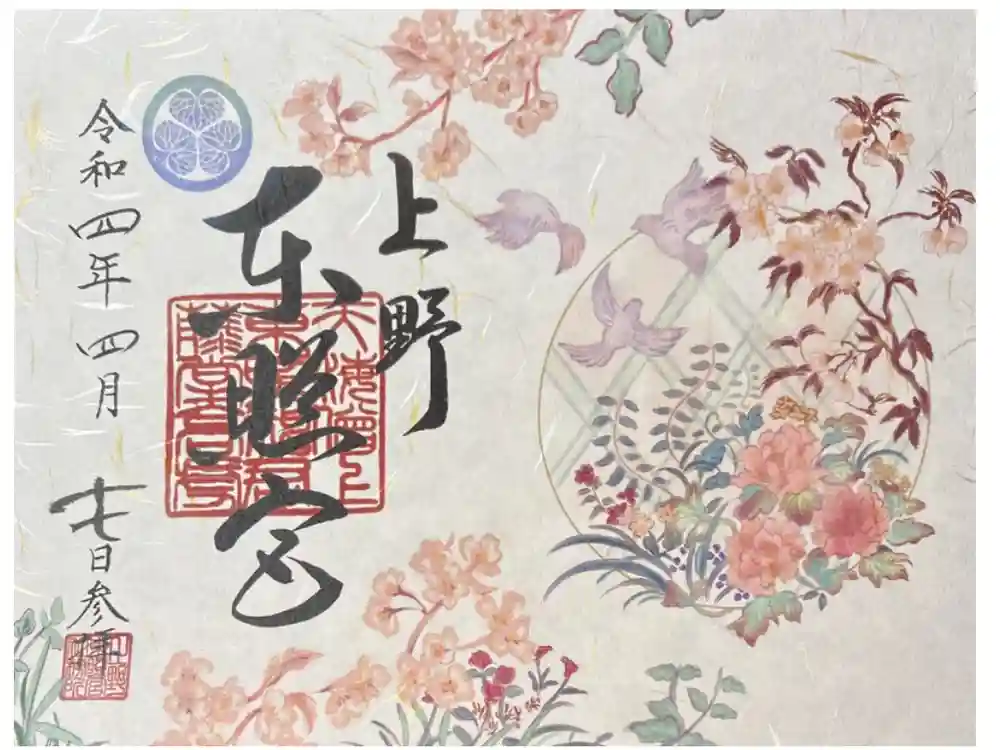 上野
東照宮
令和四年四月七日参拝